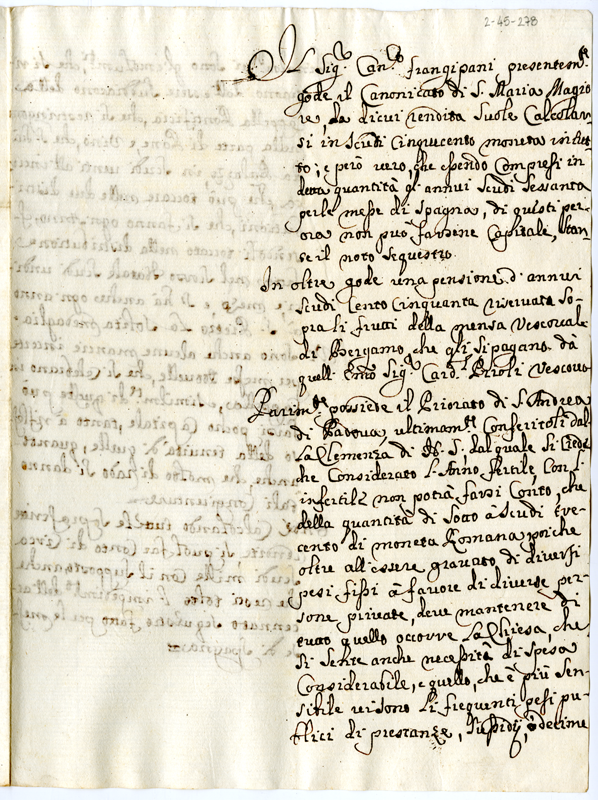 2-45-278
Il Sig.r Can.co frangipani presentem.te
gode il Canonicato di S. Maria Magio
re, da dicui rendita Suole Calcolar
si in Scudi Cinquecento moneta in tut
to; e però vero, che essendo Compresi in
detta quantità gl'annui Scudi Sessanta
per le messe di Spagna, di questi per
ora non può farsene Capitale, stan
te il noto Sequestro.
In oltre gode una pensione d'annui
scudi Cento Cinquanta riservata So
pra li frutti della mensa Vescovale
di Bergamo, che gli si pagano da
quell' Emo Sig.r Card.l Prioli Vescovo
Parim.te possiede il Priorato di S. Andrea
di Padova, ultimam.te Conferitoli dal
la Clemenza di S. dal quale Si Crede
che Considerato l'Anno fertile, con l'
infertile non potrà farsi Conto, che
della quantità di Sotto à Scudi tre
cento di moneta Romana, poiche
oltre all'essere gravato di diversi
pesi fissi à favore di diverse per
sone private, deve mantenere di
tutto quello occorre La Chiesa, che
si sente anche necessità di spesa
Considerabile, e quello, che è più Sen
sibile vi sono li frequenti pesi pu
blici di prestanze, Sussidij, e decime